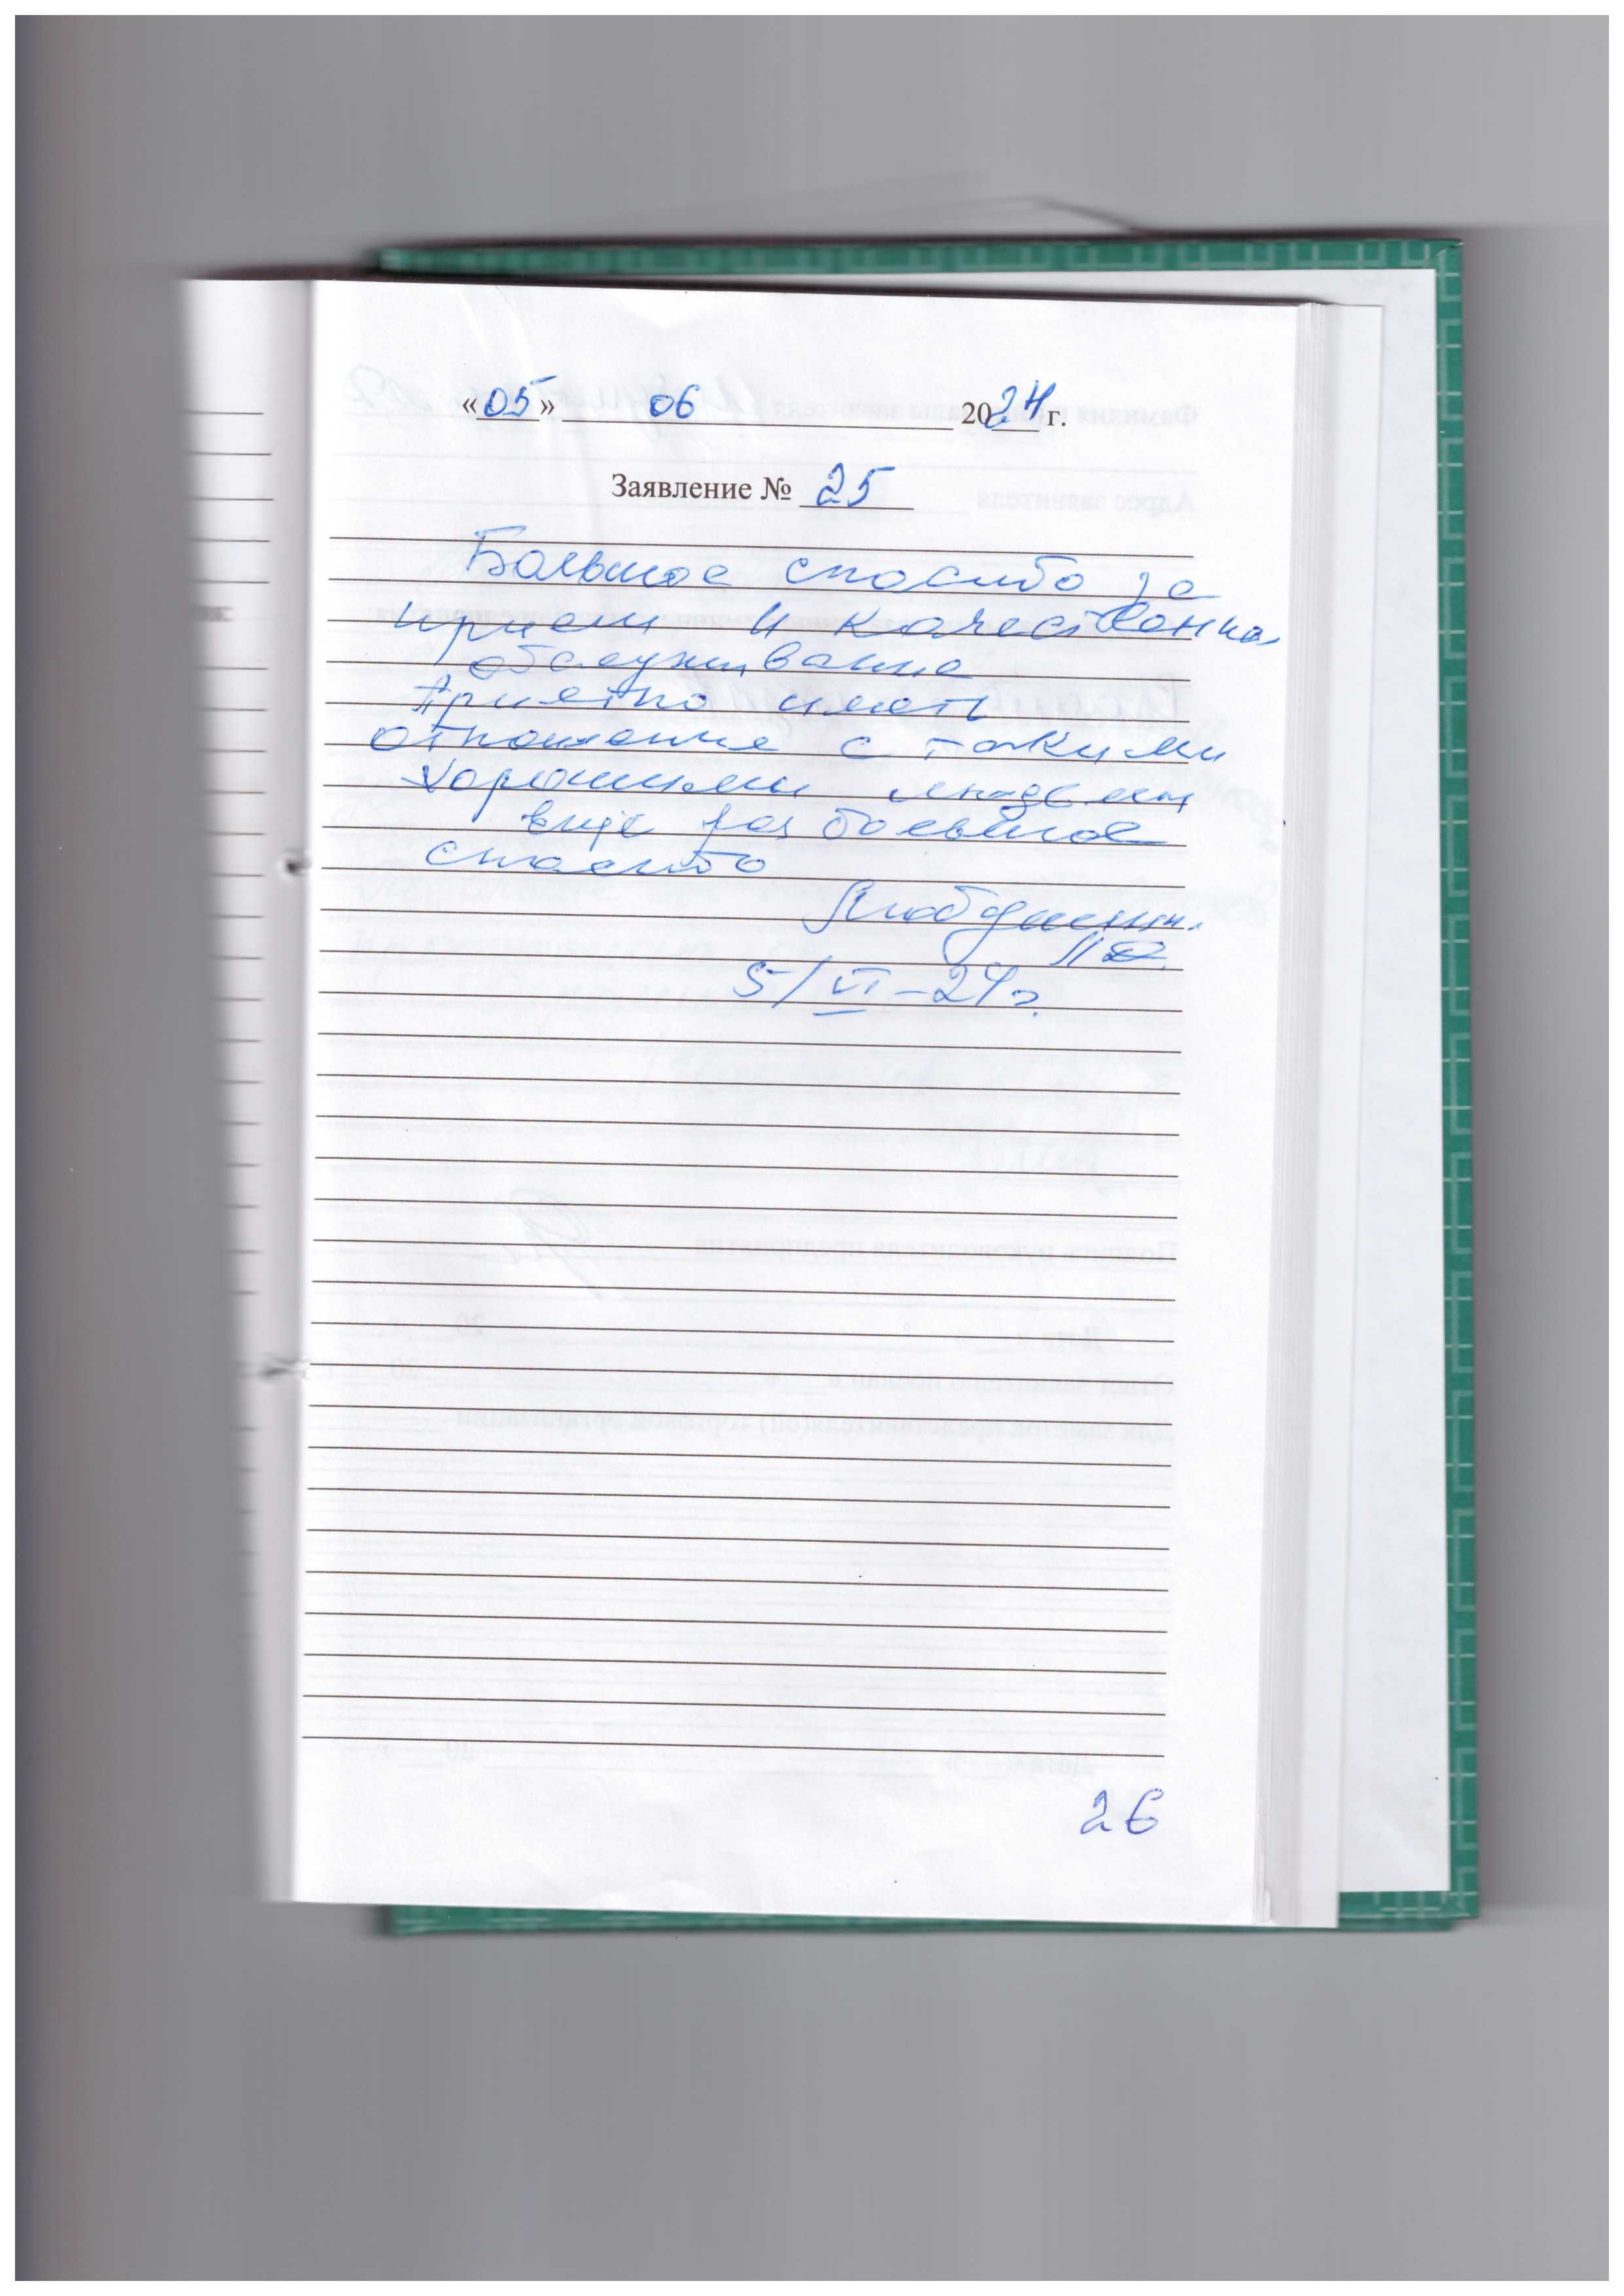 «05» 06 2024 г.
Заявление № 25
Большое спасибо за
прием и качественно
обслуживание
Приятно иметь
отношение с такими
хорошими людьми
еще раз большое
спасибо
5/VI-24 г.
26